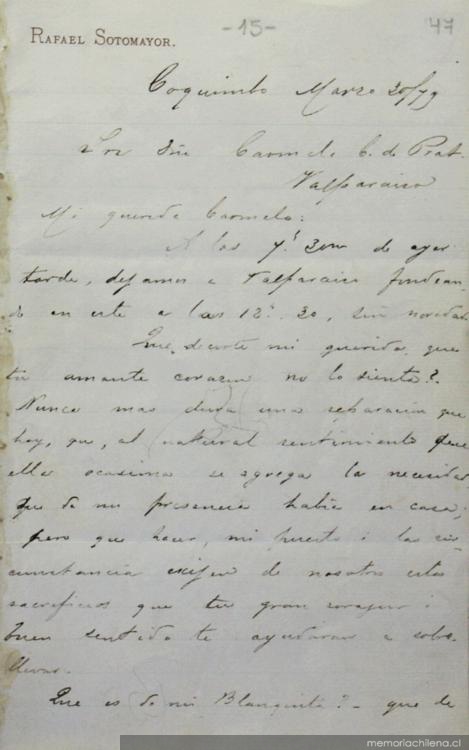 -15-
47
RAFAEL SOTOMAYOR.
Coquimbo Marzo 20/79
Sra Dñe Carmela C. de Prat.
Valparaiso
Mi querida Carmela:
A las 7. 30m de ayer
tarde, dejamos a Valparaiso fondean-
do en este a las 12. 30, sin novedad
Que decirte mi querida, que
tu amante corazon no lo sienta?.
Nunca mas dura una separacion que
hoy, que, al natural sentimiento que
ella ocasiona se agrega la necesidad
que de mi presencia habia en casa;
pero que hacer, mi puesto i las cir
cunstancia exijen de nosotros estos
sacrificios que tu gran corazon i
buen sentido te ayudaran a sobre
llevar.
Que es de mi Blanquita? - que de
memoriachilena.cl